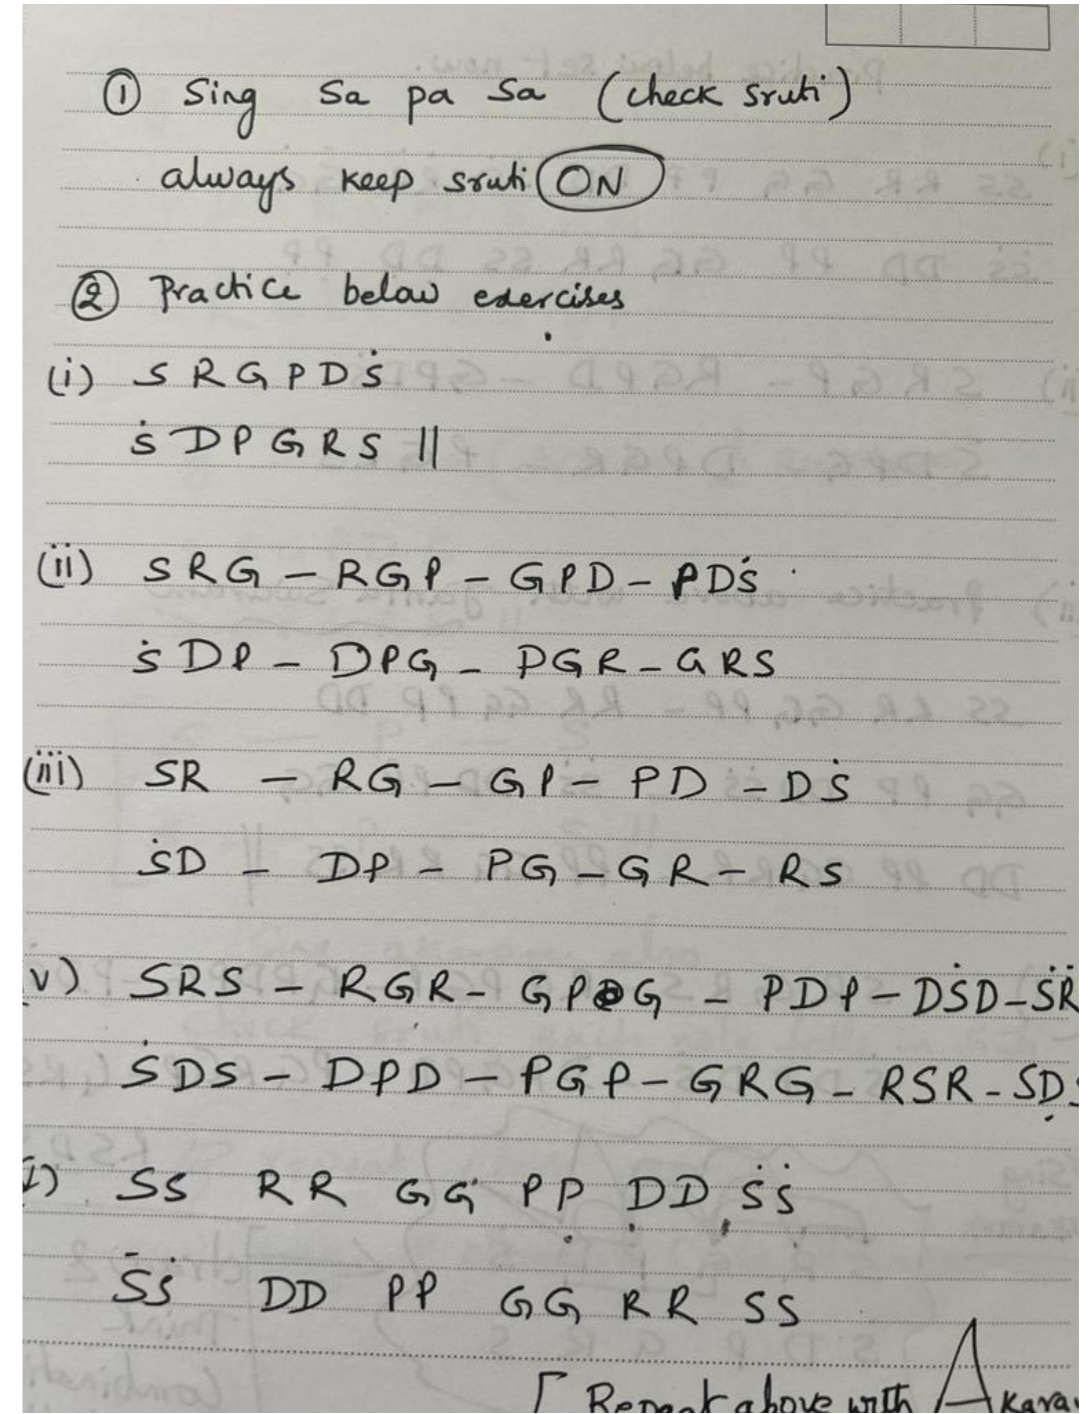 ① Sing Sa pa Sa (check sruti)
always keep sruti ON
② Practice below exercises
(i) S R G P D Ṡ
Ṡ D P G R S ||
(ii) S R G – R G P – G P D – P D Ṡ
Ṡ D P – D P G – P G R – G R S
(iii) SR – RG – GP – PD – DṠ
ṠD – DP – PG – GR – RS
v) SRS – RGR – GPG – PDP – DṠD – ṠṘ
ṠDS – DPD – PGP – GRG – RSR – SḌS
SS RR GG PP DD ṠṠ
ṠṠ DD PP GG RR SS
[ Repeat above with Akara